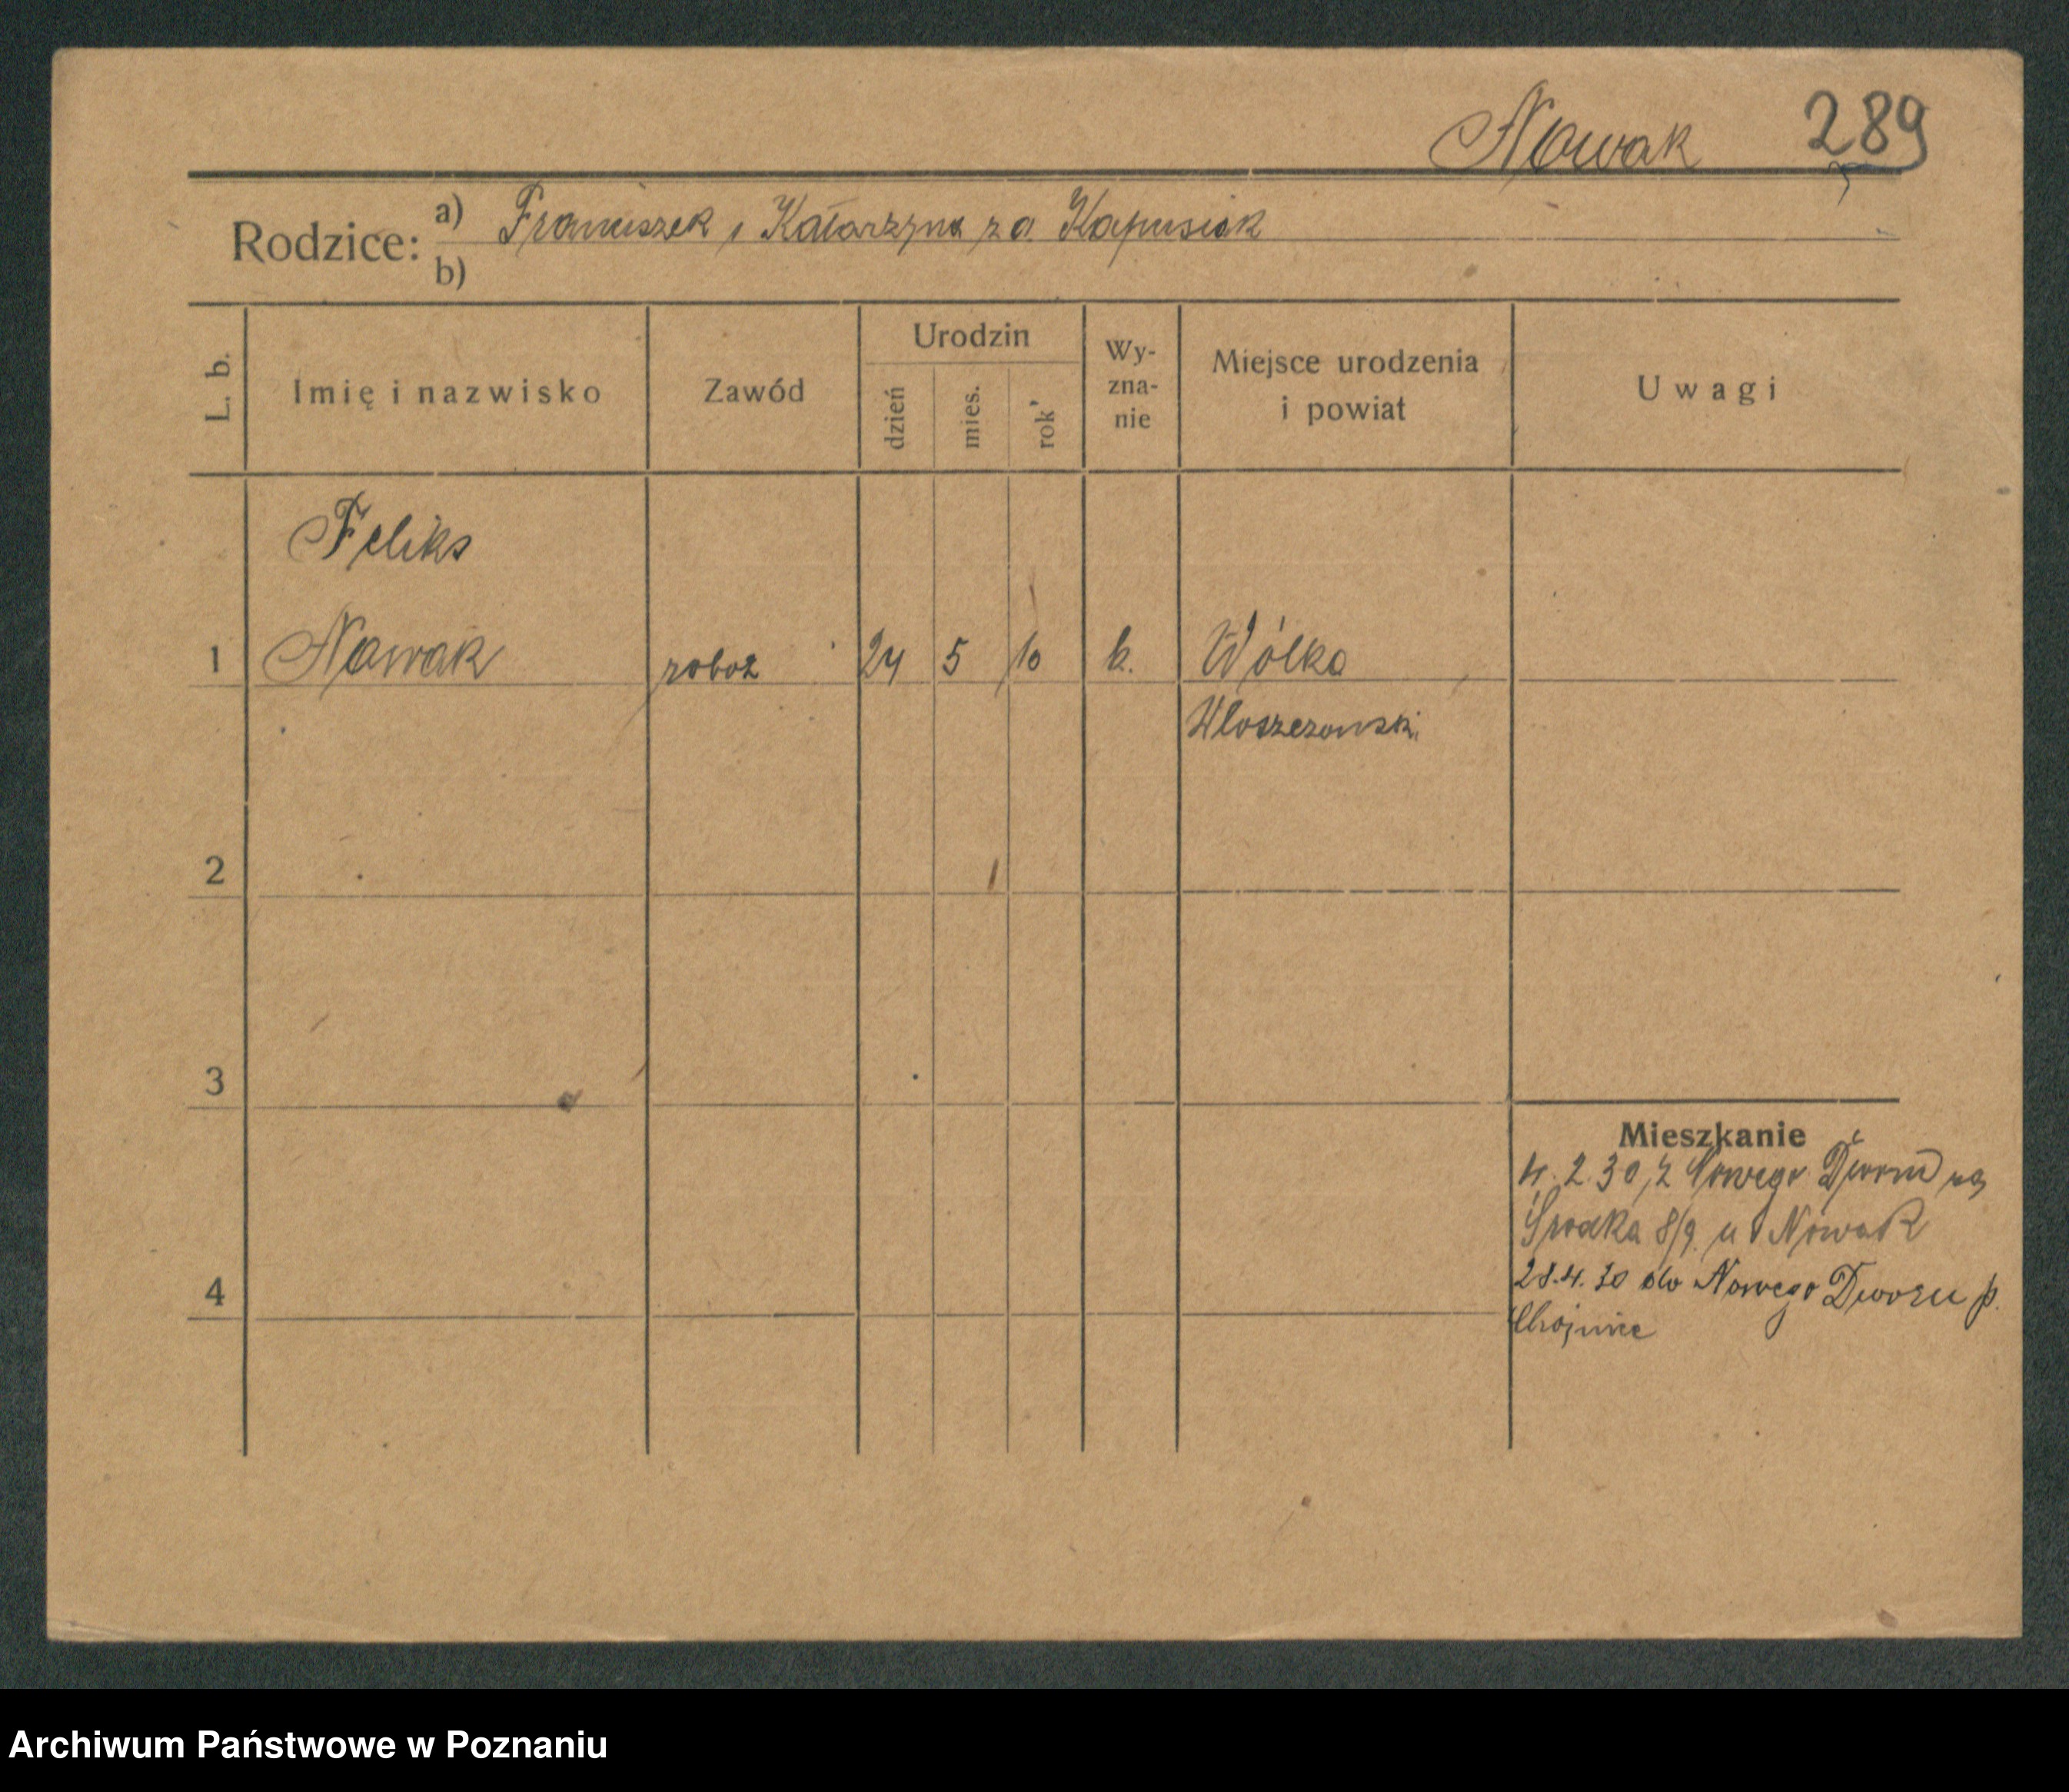 Nowak 289
Rodzice: a) Franciszek i Katarzyna z d. Kapusiak
b)
L. b. Imię i nazwisko Zawód Urodzin dzień mies. rok Wyznanie Miejsce urodzenia i powiat Uwagi
Feliks
1 Nowak robot 24 5 10 k. Wólka
Włoszczowski
2
3
Mieszkanie
4. 2. 30, z Nowego Dworu na
Środka 8/9 u Nowak
4 28.4.30 do Nowego Dworu p.
Chojnice
Archiwum Państwowe w Poznaniu